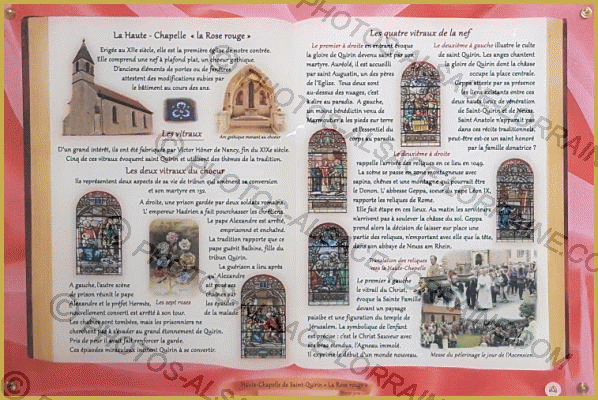 La Haute - Chapelle « la Rose rouge »
Erigée au XIIe siècle, elle est la première église de notre contrée.
Elle comprend une nef à plafond plat, un chœur gothique.
D'anciens éléments de portes ou de fenêtres
attestent des modifications subies par
le bâtiment au cours des ans.
Les vitraux
Arc gothique menant au chœur
D'un grand intérêt, ils ont été fabriqués par Victor Höner de Nancy, fin du XIXe siècle.
Cinq de ces vitraux évoquent saint Quirin et utilisent des thèmes de la tradition.
Les deux vitraux du choeur
Ils représentent deux aspects de sa vie de tribun qui amènent sa conversion
et son martyre en 132.
A droite, une prison gardée par deux soldats romains.
L'empereur Hadrien a fait pourchasser les chrétiens.
Le pape Alexandre est arrêté,
emprisonné et enchaîné.
La tradition rapporte que ce
pape guérit Balbine, fille du
tribun Quirin.
La guérison a lieu après
qu'Alexandre
ait posé ses
chaînes sur
les épaules
de la malade
Les sept roses
A gauche, l'autre scène
de prison réunit le pape
Alexandre et le préfet Hermès,
nouvellement converti est arrêté à son tour.
Les chaînes sont tombées, mais les prisonniers ne
cherchent pas à s'évader au grand étonnement de Quirin.
Pris de peur il avait fait renforcer la garde.
Ces épisodes miraculeux incitent Quirin à se convertir.
Les quatre vitraux de la nef
Le premier à droite en entrant évoque
la gloire de Quirin devenu saint par son
martyre. Auréolé, il est accueilli
par saint Augustin, un des pères
de l'Eglise. Tous deux sont
au-dessus des nuages, c'est
à dire au paradis. A gauche,
un moine bénédictin venu de
Marmoutier a les pieds sur terre
et l'essentiel du
corps au paradis.
Le deuxième à gauche illustre le culte
de saint Quirin. Les anges chantent
la gloire de Quirin dont la châsse
occupe la place centrale.
Geppa atteste par sa présence
les liens existants entre ces
deux hauts lieux de vénération
de Saint-Quirin et de Neuss.
Saint Anatole n'apparaît pas
dans ces récits traditionnels,
peut-être est-ce un saint honoré
par la famille donatrice ?
Le deuxième à droite
rappelle l'arrivée des reliques en ce lieu en 1049.
La scène se passe en zone montagneuse avec
sapins, chênes et une montagne qui pourrait être
le Donon. L'abbesse Geppa, soeur du pape Léon IX,
rapporte les reliques de Rome.
Elle fait étape en ces lieux. Au matin les serviteurs
n'arrivent pas à soulever la châsse du sol. Geppa
prend alors la décision de laisser sur place une
partie des reliques, n'emportant avec elle que la tête,
dans son abbaye de Neuss am Rhein.
Translation des reliques
vers la Haute-Chapelle
Le premier à gauche
le vitrail du Christ
évoque la Sainte Famille
devant un paysage
paisible et une figuration du temple de
Jérusalem. La symbolique de l'enfant
est précise : c'est le Christ Sauveur avec
ses bras étendus, l'Agneau immolé.
Il exprime le début d'un monde nouveau.
Messe du pèlerinage le jour de l'Ascension
Haute-Chapelle de Saint-Quirin « La Rose rouge »
PHOTOS-ALSACE-LORRAINE.COM